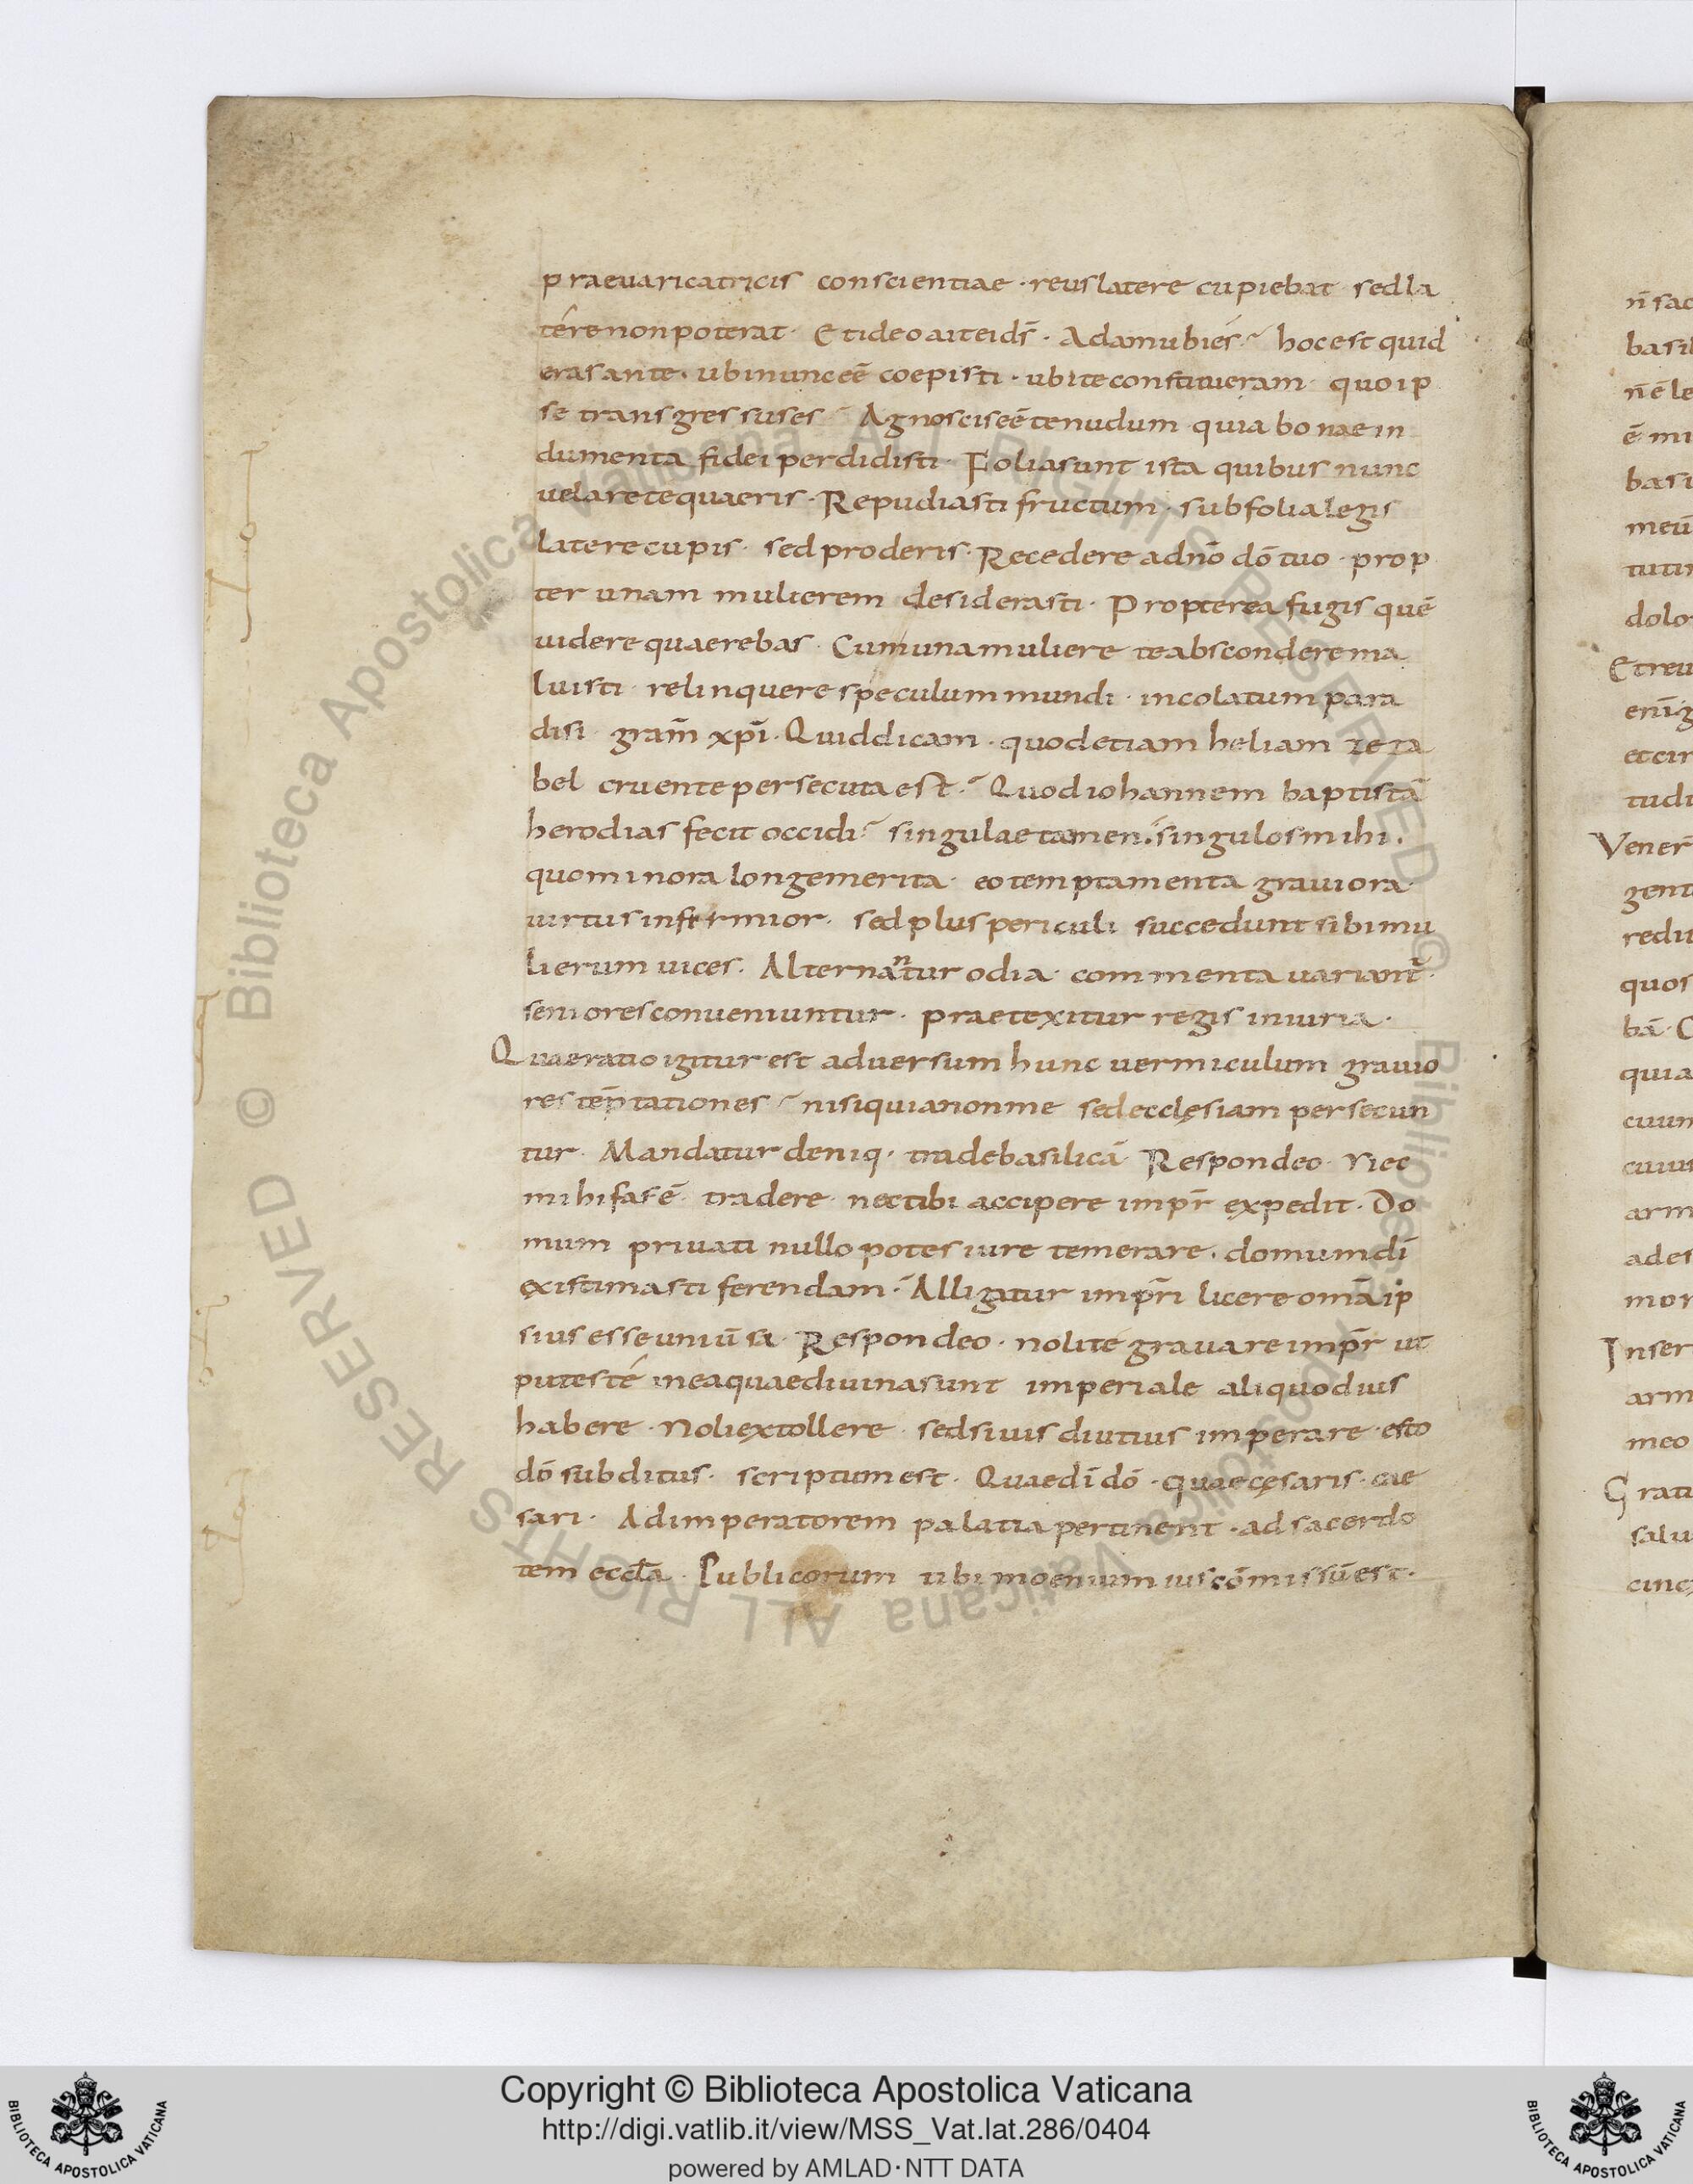 praevaricatricis conscientiae · reus latere cupiebat sed la
tére non poterat · Et ideo ait ei dš · Adam ubi és · hoc est quid
eras ante · ubi nunc eē coepisti · ubi te constitueram · quo ip
se transgressus es Agnoscis eē te nudum quia bonae in
dumenta fidei perdidisti · Folia sunt ista quibus nunc
velare te quaeris · Repudiasti fructum · sub folia legis
latere cupis · sed proderis · Recedere a dn̄o dō tuo · prop
ter unam mulierem desiderasti · Propterea fugis quē
videre quaerebas · Cum una muliere te abscondere ma
luisti · relinquere speculum mundi · incolatum para
disi · gram̄ xp̄i · Quid dicam · quod etiam heliam ieza
bel cruente persecuta est · Quod iohannem baptistā
herodias fecit occidi singulae tamen · singulos mihi ·
quo minora longe merita · eo temptamenta graviora ·
virtus infirmior · sed plus periculi succedunt sibi mu
lierum vices · Alternantur odia · commenta variant̄ ·
seniores conveniuntur · praetexitur regis iniuria ·
Quae ratio igitur est adversum hunc vermiculum gravio
res tēptationes nisi quia non me sed ecclęsiam persecun
tur · Mandatur deniq · trade basilicā Respondeo · Nec
mihi fas ē · tradere · nec tibi accipere imp̄r expedit · Do
mum privati nullo potes iure temerare · domum dī
existimasti ferendam · Alligatur imp̄ri licere om̄a ip
sius esse uniū sa · Respondeo · nolite gravare imp̄r ut
putes té in ea quae divina sunt imperiale aliquod ius
habere · Noli extollere · sed si vis diutius imperare · esto
dō subditus · scriptum est · Quae dī dō · quae cęsaris · cae
sari · Ad imperatorem palatia pertinent · ad sacerdo
tem eccl̄a · Publicorum tibi moenium ius cōmissū est ·
n̄ sac
basil
n̄ ē le
ē · mi
basi
meū
tuti
dolo
Et reu
enī g
et cir
tudi
Vener
gent
redit
quos
bā · C
quia
cuum
cuius
arm
ad es
mor
Inser
arm
meo
Grati
salu
cinc
Copyright © Biblioteca Apostolica Vaticana
http://digi.vatlib.it/view/MSS_Vat.lat.286/0404
powered by AMLAD·NTT DATA
BIBLIOTECA APOSTOLICA VATICANA
BIBLIOTECA APOSTOLICA VATICANA
© Biblioteca Apostolica Vaticana ALL RIGHTS RESERVED
© Biblioteca Apostolica Vaticana ALL RIGHTS RESERVED